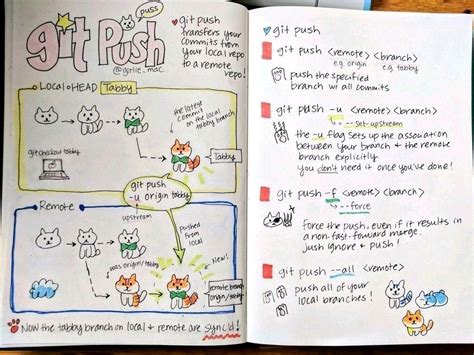 git Push
puss
@girlie_mac
git push
transfers your
commits from
your local repo
to a remote
repo!
Local HEAD Tabby
the latest
commit
on the local
tabby branch
git checkout tabby
Tabby
git push
-u origin tabby
Remote
upstream
pushed
from
local
was origin/tabby
New!
remote branch
origin/tabby
Now the tabby branch on local & remote are sync'd!
git push
git push <remote> <branch>
e.g. origin e.g. tabby
push the specified
branch w/ all commits
git push -u <remote> <branch>
--set-upstream
the -u flag sets up the association
between your branch & the remote
branch explicitly
you don't need it once you've done!
git push -f <remote> <branch>
--force
force the push, even if it results in
a non-fast-forward merge.
Just ignore & push!
git push --all <remote>
push all of your
local branches!